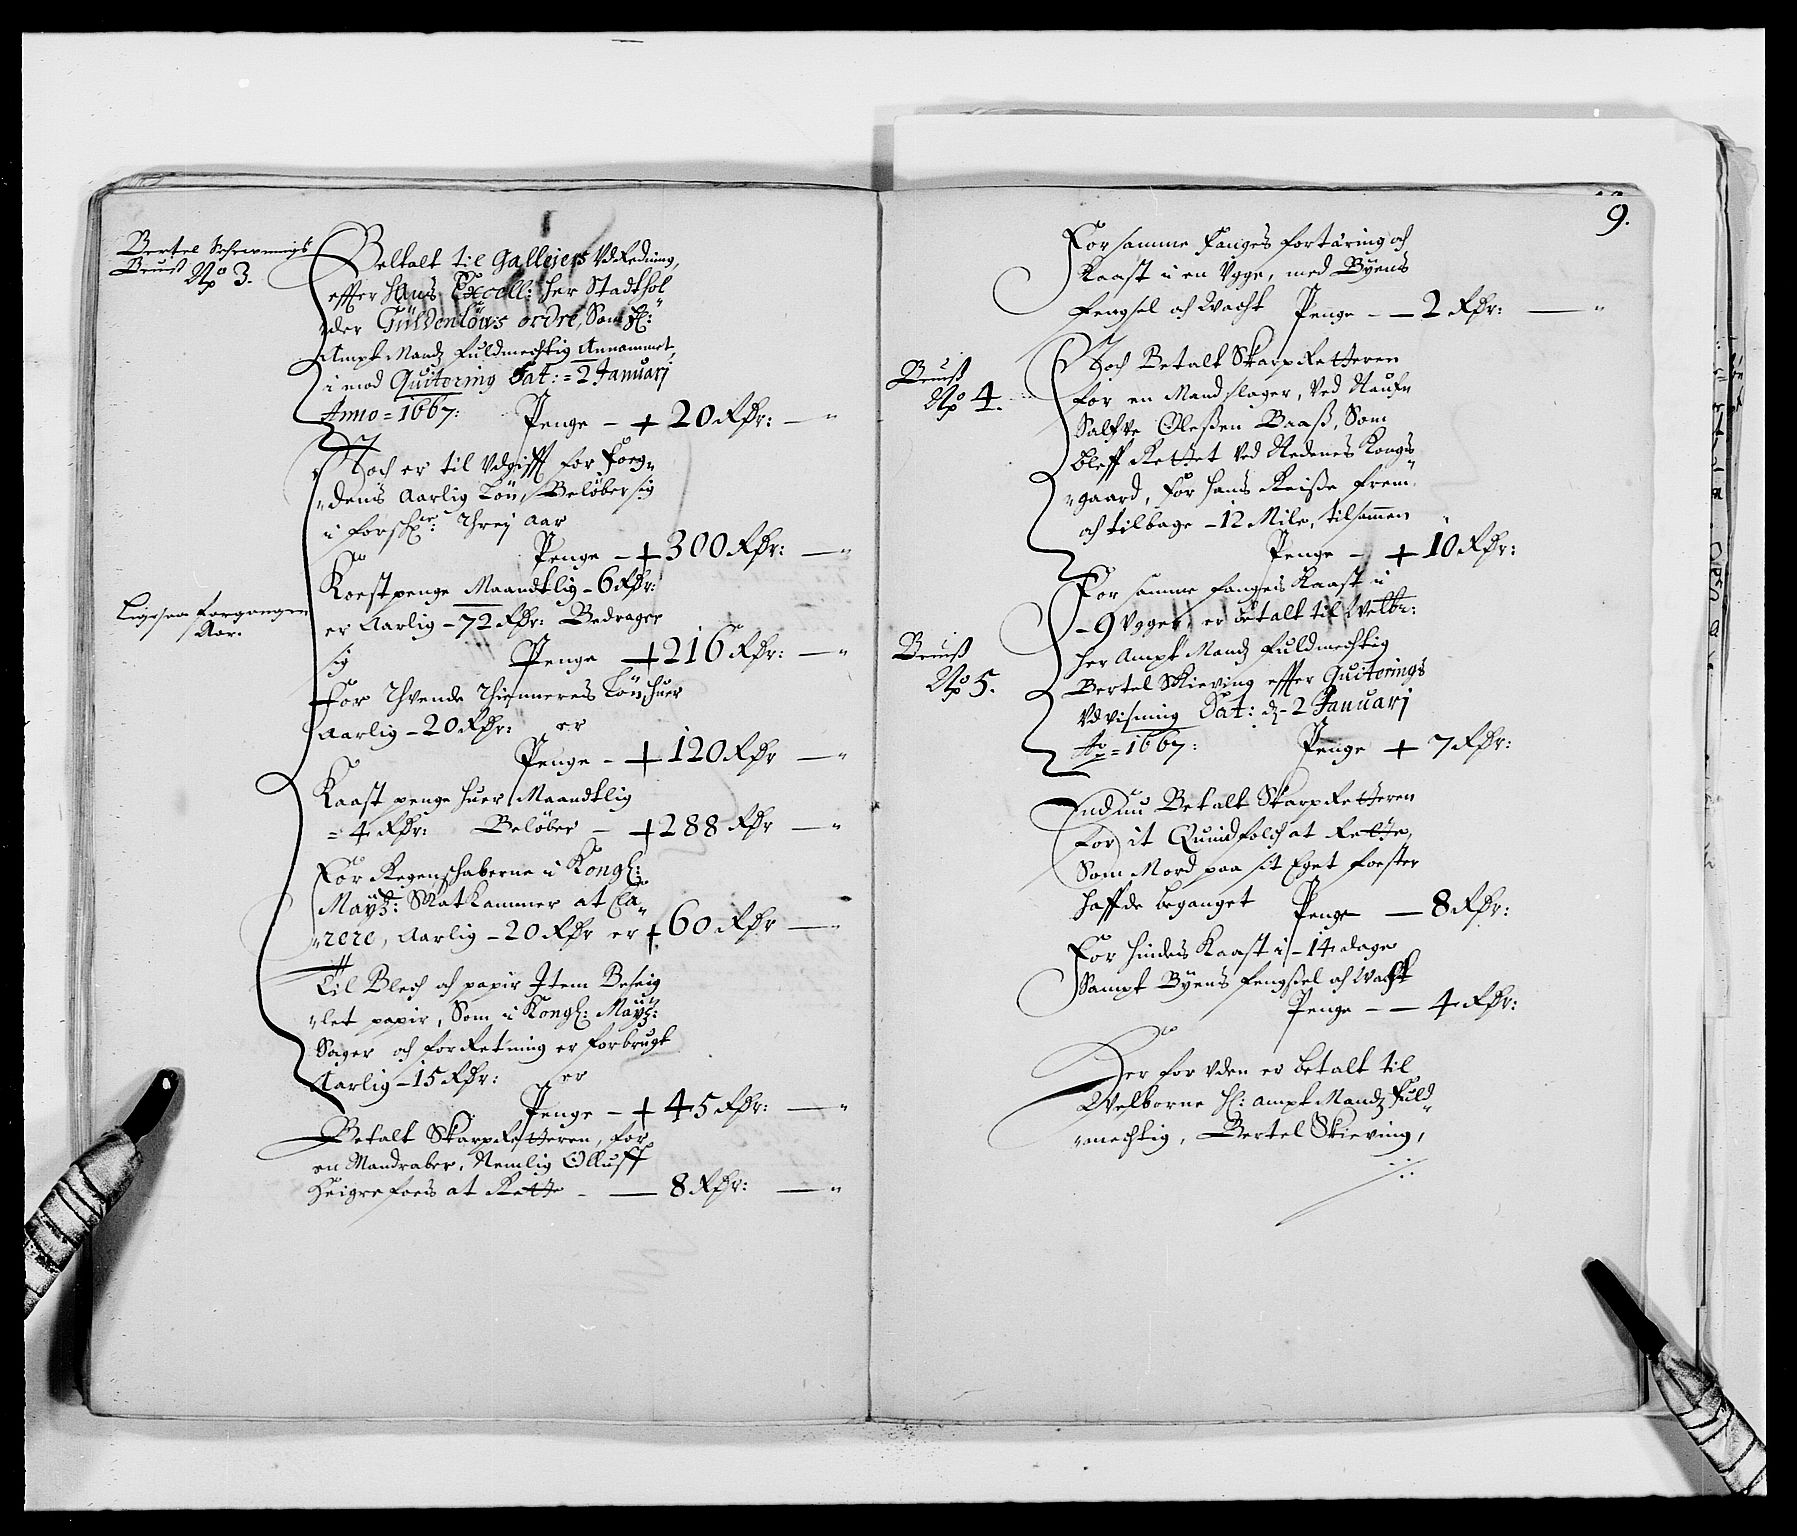 Bertel Schevenigs
Beuiß No 3.
Betalt til Galleiers Vdredning,
effter Hans Excell: her Stadthol
der Güldenlöws ordre, Som H:
Ampt Mandz fuldmechtig Annammet,
imod Quitering Dat: = 2 Januarj
Anno = 1667: Penge - + 20 Rdr: — "
Noch er til Vdgifft for Foeg-
dens Aarlig Lön, Beløber sig
i forschr: Threj aar
Penge - + 300 Rdr: — "
Koestpenge Maandtlig - 6 Rdr:
Ligesaa forgangen
Aar.
er Aarlig - 72 Rdr: Bedrager
sig Penge + 216 Rdr: — "
For Thvende Thienneres Lön, huer
Aarlig - 20 Rdr: er
Penge - + 120 Rdr — "
Kaast penge huer Maandtlig
= 4 Rdr: Beløber - + 288 Rdr — "
For Regenschaberne i Kongl:
Maytz: Skatkammer at Cla-
rere, Aarlig - 20 Rdr er + 60 Rdr — "
Til Blech och papir Item Beseig-
let papir, Som i Kongl: Maytz:
Sager och forRetning er forbrugt
Aarlig - 15 Rdr: er
Penge - + 45 Rdr: — "
Betalt SkarpRetteren, for
en Mandraber, Nemlig Olluff
Heigrefoes at Rette - — 8 Rdr: — "
9.
For samme Fanges fortäring och
Kaast i en Vgge, med Byens
Fengsel och Vacht Penge - — 2 Rdr: — "
Beuiß
No 4.
Noch Betalt SkarpRetteren
for en Mandslager, Ved Naufn
Salfve Oleßen Baaß, Som
bleff Rettet Ved Nedenes Kongs
gaard, for hans Reiße frem
och tilbage - 12 Mile, tilsammen
Penge - + 10 Rdr:
For samme fangeis Kaast i
- 9 Vgger, er betalt til Welbr:
Beuiß
No 5.
her Ampt Mandz Fuldmechtig
Bertel Skieving effter Quiterings
Vdvisning Dat: d - 2 Januarj
Ao = 1667: Penge + 7 Rdr:
Endnu Betalt SkarpRetteren
for it Quindfolch at Rette,
Som Mord paa sit Eget foester
haffde beganget Penge — 8 Rdr:
For hindes Kaast i - 14 dage
Sampt Byens fengsel och Vacht
Penge - — 4 Rdr:
Der for vden er betalt til
Welborne H: ampt Mandz Fuld-
mechtig, Bertel Skieving,